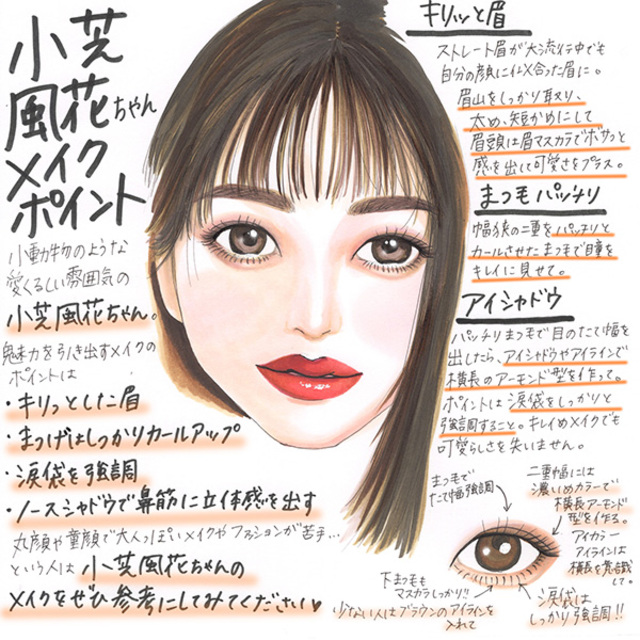 小芝
風花ちゃん
メイク
ポイント
小動物のような
愛くるしい雰囲気の
小芝風花ちゃん。
魅力を引き出すメイクの
ポイントは
・キリっとした眉
・まつげはしっかりカールアップ
・涙袋を強調
・ノースシャドウで鼻筋に立体感を出す
丸顔や童顔で大人っぽいメイクやファションが苦手…
という人は小芝風花ちゃんの
メイクをぜひ参考にしてみてください♥
キリッと眉
ストレート眉が大流行中でも
自分の顔に似合った眉に。
眉山をしっかり取り、
太め、短かめにして
眉頭は眉マスカラでボサっと
感を出して可愛さをプラス。
まつ毛パッチリ
幅狭の二重をパッチリと
カールさせたまつ毛で目の重を
キレイに見せて。
アイシャドウ
パッチリまつ毛で目のたて幅を
出したら、アイシャドウやアイラインで
横長のアーモンド型を作って。
ポイントは涙袋をしっかりと
強調すること。キレイめメイクでも
可愛らしさを失いません。
まつ毛で
たて幅強調
二重幅には
濃いめカラーで
横長アーモンド
型を作る。
アイカラー
アイラインは
横長を意識
して。
下まつ毛も
マスカラしっかり!!
少ない人はブラウンのアイラインを
入れて
涙袋は
しっかり強調!!